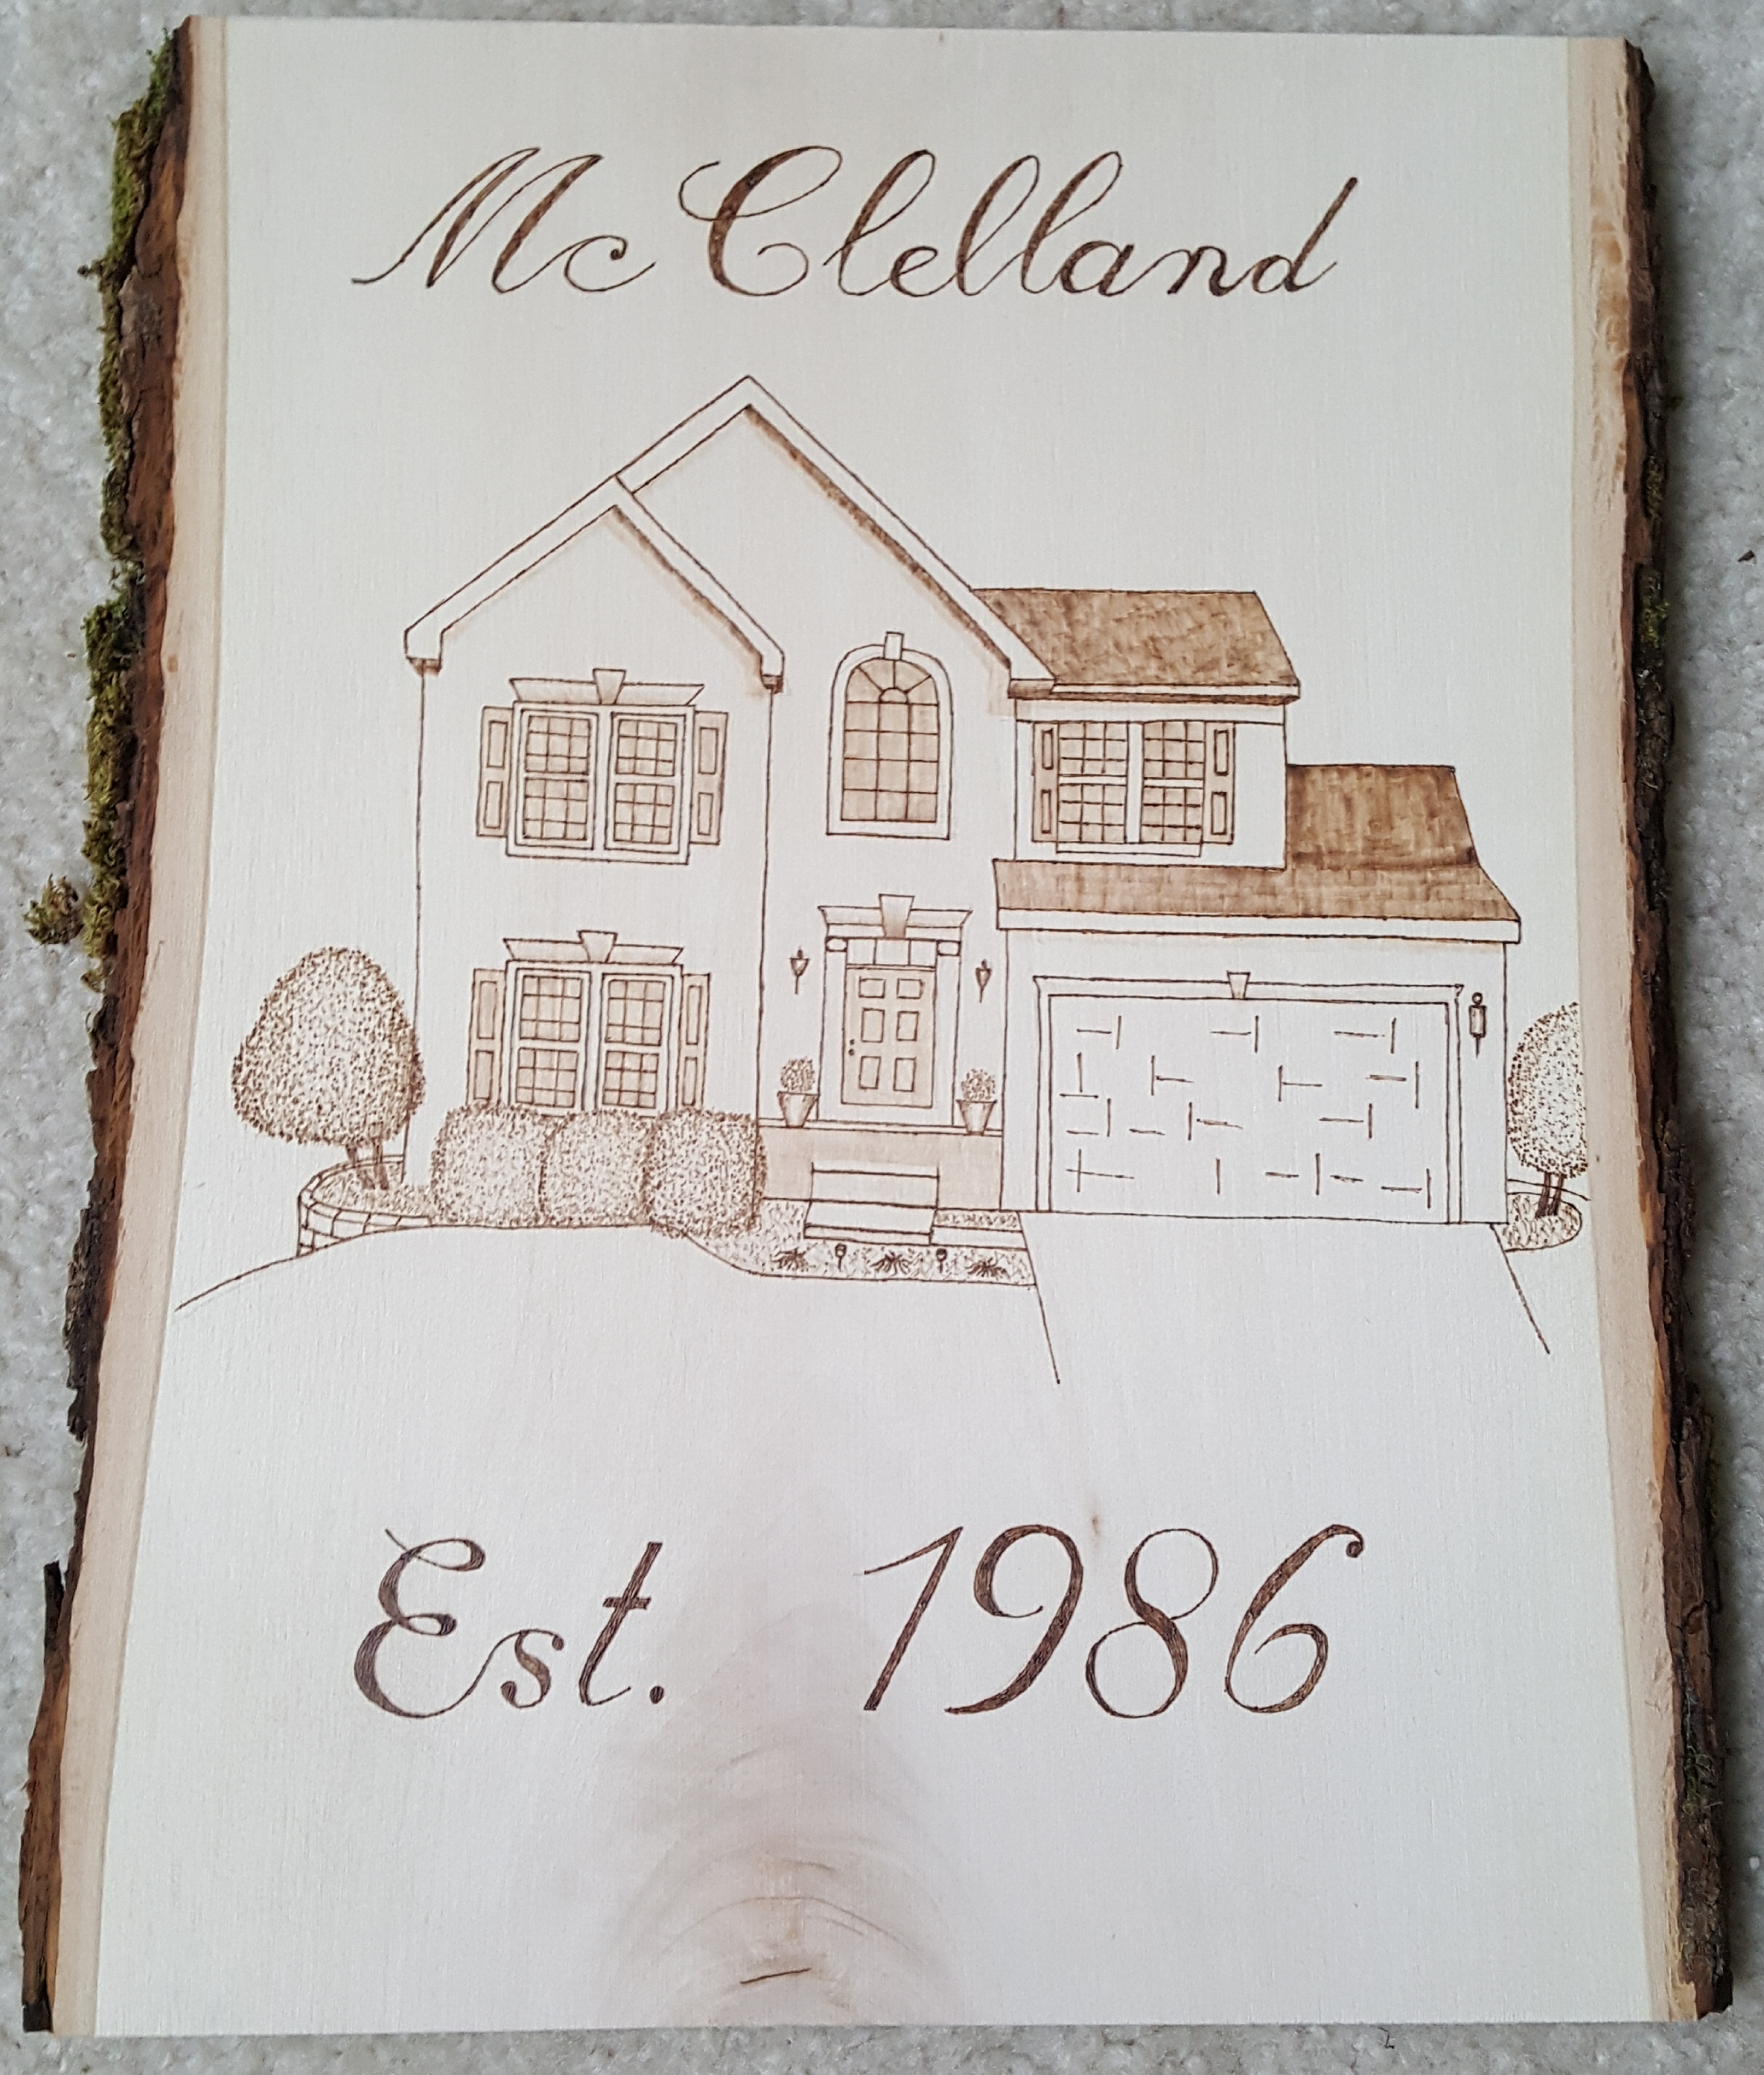 McClelland
Est. 1986